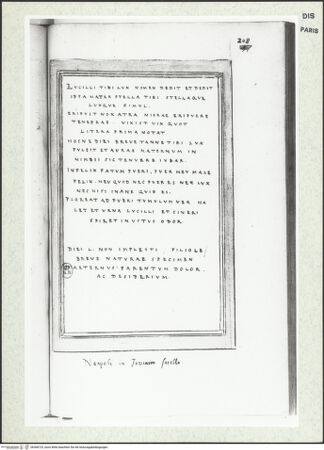 DIS
PARIS
208
LUCILLI TIBI LUX NOMEN DEDIT ET DEDIT
IPSA MATER STELLA TIBI STELLAQUE
LUXQUE SIMUL.
ERIPUIT NOX ATRA NIGRAE ERIPUERE
TENEBRAE VIXIT VIX QUOT
LITERA PRIMA NOTAT
HOSNE DIES BREVE TAN NE TIBI LUX
FULSIT ET AURAE MATERNUM IN
NIMBIS SIC TENUERE IUBAR.
INFELIX FATUM PUERI, PUER HEU MALE
FELIX. HEU QUOD NEC PUER ES NEC LUX
NEC NISI INANE QUID ES.
FLOREAT AD PUERI TUMULUM VER HA
LET ET URNA LUCILLI ET CINERI
SPIRET INUSTUS ODOR
DIEI L. NON IMPLESTI FILIOLE
BREVE NATURAE SPECIMEN
AETERNUS PARENTUM DOLOR.
AC DESIDERIUM.
Neapoli in